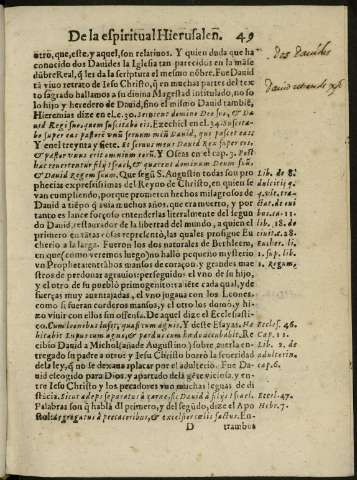 De la espiritual Hierusalē. 49
otro, que, este, y aquel, son relatiuos. Y quien duda que ha
conocido dos Dauides la Iglesia tan parecidos en la māse
dūbre Real, q̄ les da la scriptura el mesmo nōbre. Fue Dauid
tā viuo retrato de Iesu Christo, q̄ en muchas partes del tex
to sagrado llamamos a su diuina Magestad intitulado, no so
lo hijo y heredero de Dauid, sino el mismo Dauid tambiē,
Hieremias dize en el c. 30. Seruient domino Deo suo, & Da
uid Regi suo, quem suscitabo eis. Ezechiel en el 34. Suscita-
bo super eas pastorē vnū seruum meum Dauid, qui pascet eas
Y en el treynta y siete. Et seruus meus Dauid Rex super eos,
& pastor vnus erit omnium eorū. Y Oseas en el cap. 3. Post
hæc reuertentur filij Israel, & quærent dominum Deum suū,
& Dauid Regem suum. Que segū S. Augustin todas son pro
phecias expressissimas del Reyno de Christo, en quien se
van cumpliendo, porque prometen hechos milagrosos de
Dauid a tiēpo q̄ auia muchos años, que era muerto, y por
tanto es lance forçoso entenderlas literalmente del segun
do Dauid, restaurador de la libertad del mundo, a quien el
primero en tātas cosas representò, las quales prosigue Eu
cherio a la larga. Fueron los dos naturales de Bethleem,
en que (como veremos luego) no hallò pequeño mysterio
vn Propheta: entrābos mansos de coraçon y grandes mae
stros de perdonar agrauios: perseguidos el vno de su hijo,
y el otro de su pueblo primogenito: tā siete cada qual, y de
fuerças muy auentajadas, el vno jugaua con los Leones,
como si fueran corderos mansos, y el otro los domò, y hi-
zo viuir con ellos sin offensa. De aquel dize el Ecclesiasti-
co. Cum leonibus lusit, quasi cum agnis. Y deste Esayas. Ha
bitabit lupus cum agno, & pardus cum hædo accubabit. Re
cibio Dauid a Michol (añade Augustino) sobre auerla en-
tregado su padre a otro: y Iesu Christo borrò la seueridad
de la ley, q̄ no se dexaua aplacar por el adulterio. Fue Da-
uid elegido para Dios, y apartado de la gēte viciosa, y en-
tre Iesu Christo y los pecadores vuo muchas leguas de di
sticia. Sicut adeps separatus à carne, sic Dauid à filijs Israel.
Palabras son q̄ hablā dl primero, y del segūdo, dize el Apo
stol: segregatus à peccatoribus, & excelsior cœlis factus. En-
D trambos
Dos Dauides
Lib. de 8.
dulcitij q.
q. vlt. tra-
ctat. de cui
bus. ca. 11.
lib. 18. de
ciuit. c. 28.
Eucher. li.
1. sup. lib.
1. Regum.
Eccles. 46.
Cap. 11.
Lib. 2. de
adulterin.
cap. 6.
Eccl. 47.
Hebr. 7.